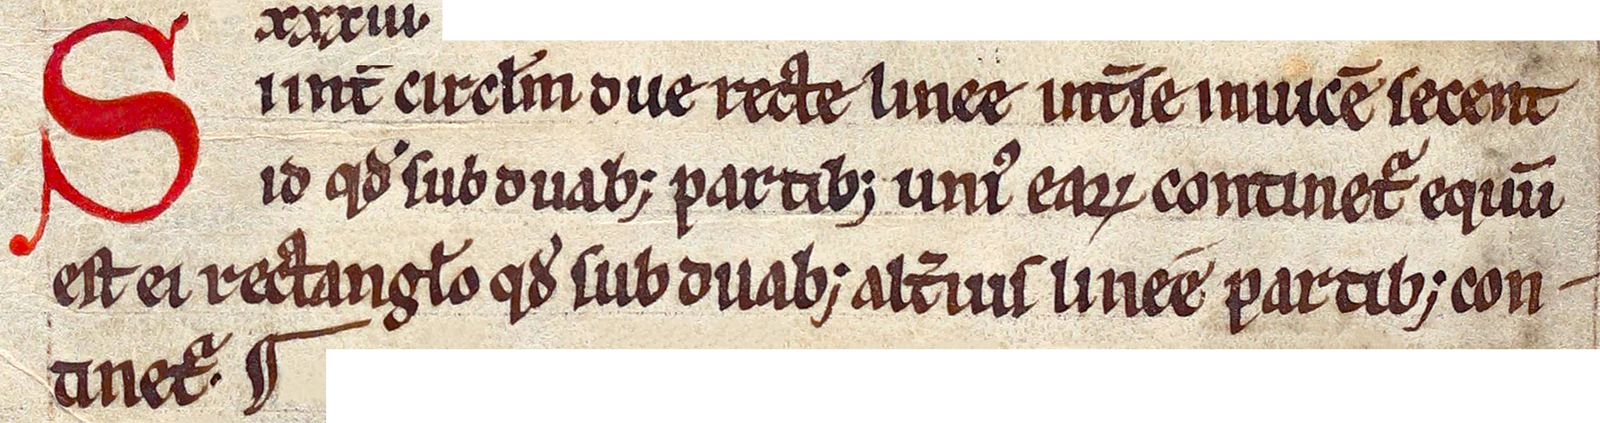 xxxiii.
Si int̄ circl̄m due recte linee int̄se inuicē secent
id qd̓ sub duab; partib; uniꝰ eaꝝ continet᷑ equū
est ei rectangl̄o qd̓ sub duab; alt̄ius linee partib; con-
tinet᷑. ¶